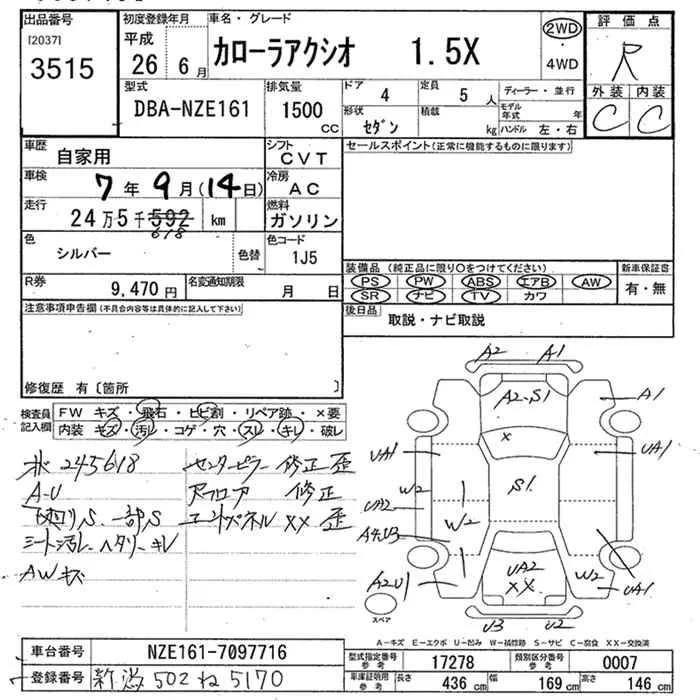 出品番号
[2037]
3515
初度登録年月
平成
26 6月
車名・グレード
カローラアクシオ 1.5X
2WD
・
4WD
評価点
R
外装 内装
C C
型式
DBA-NZE161
排気量
1500
CC
ドア
4
定員
5 人
ディーラー・並行
モデル
年式 年
形状
セダン
積載
kg
ハンドル 左・右
車歴
自家用
シフト
CVT
セールスポイント(正常に機能するものに限ります)
車検
7年9月(14日)
冷房
AC
走行
24万5千592 km
618
燃料
ガソリン
色
シルバー
色替
色コード
1J5
R券
9,470円
名変通知期限
月 日
装備品 (純正品に限り○をつけてください)
PS PW ABS エアB AW
SR ナビ TV カワ
新車保証書
有・無
注意事項申告欄(不具合内容等は具体的に記入して下さい)
後日品
取説・ナビ取説
修復歴 有〔箇所 〕
検査員
記入欄
FW キズ・飛石・ヒビ割・リペア跡・×要
内装 キズ・汚レ・コゲ・穴・スレ・キレ・破レ
245618
A-U
S、一部S
シート汚レ、ヘタリ、キレ
AWキズ
センターピラー 修正 歪
アフロア 修正
エンドパネル ×× 歪
A2 A1
A2-S1
A1
×
UA1
UA1
W2
S1
UA2
W2
A4U3
A2U1
UA2
××
W2
UA1
スペア
U3 U2
A-キズ E-エクボ U-凹み W-補修跡 S-サビ C-腐食 XX-交換済
車台番号
NZE161-7097716
型式指定番号
参考
17278
類別区分番号
参考
0007
登録番号
新潟 502 ね 5170
車庫証明用
参考
長さ
436 cm
幅
169 cm
高さ
146 cm